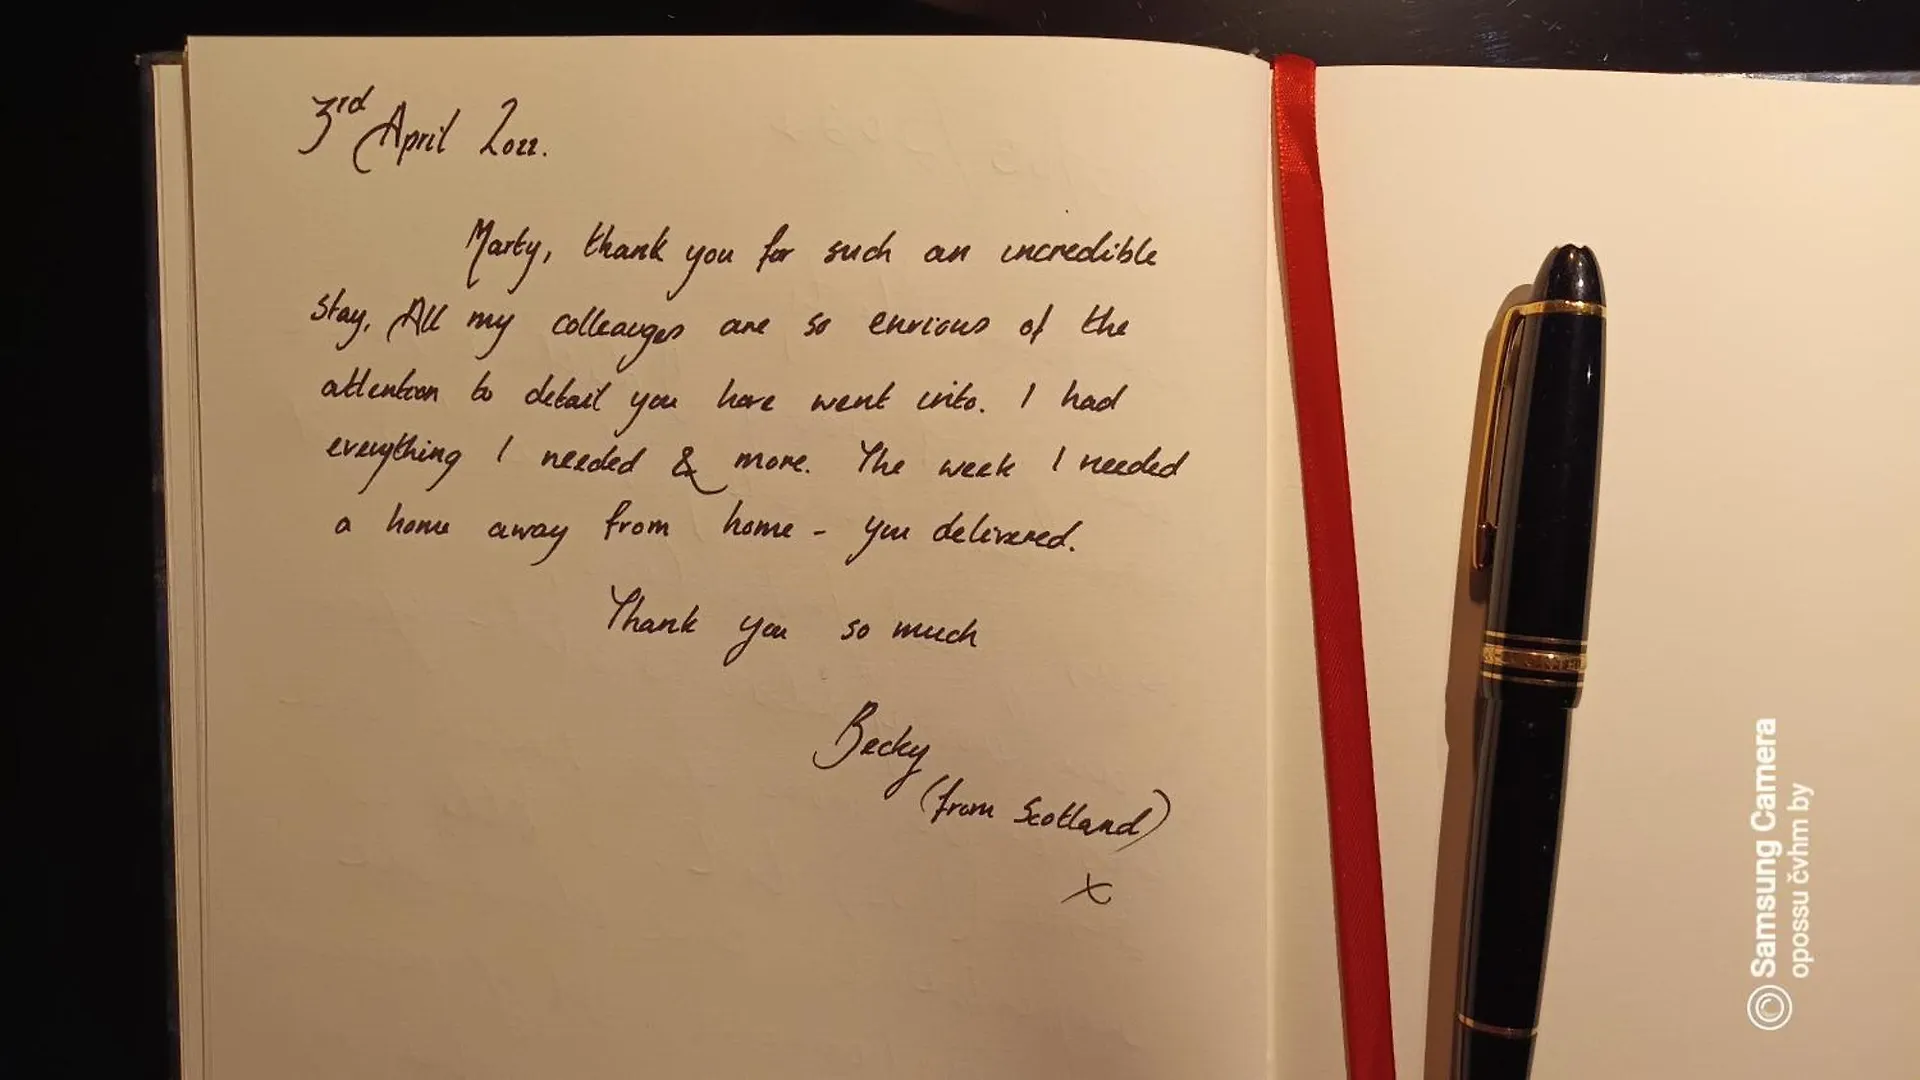 3rd April 2022.
Marty, thank you for such an incredible
stay. All my colleauges are so envious of the
attention to detail you have went into. I had
everything I needed & more. The week I needed
a home away from home - you delivered.
Thank you so much
Becky
(from Scotland)
x
© Samsung Camera
opossu čvhm by